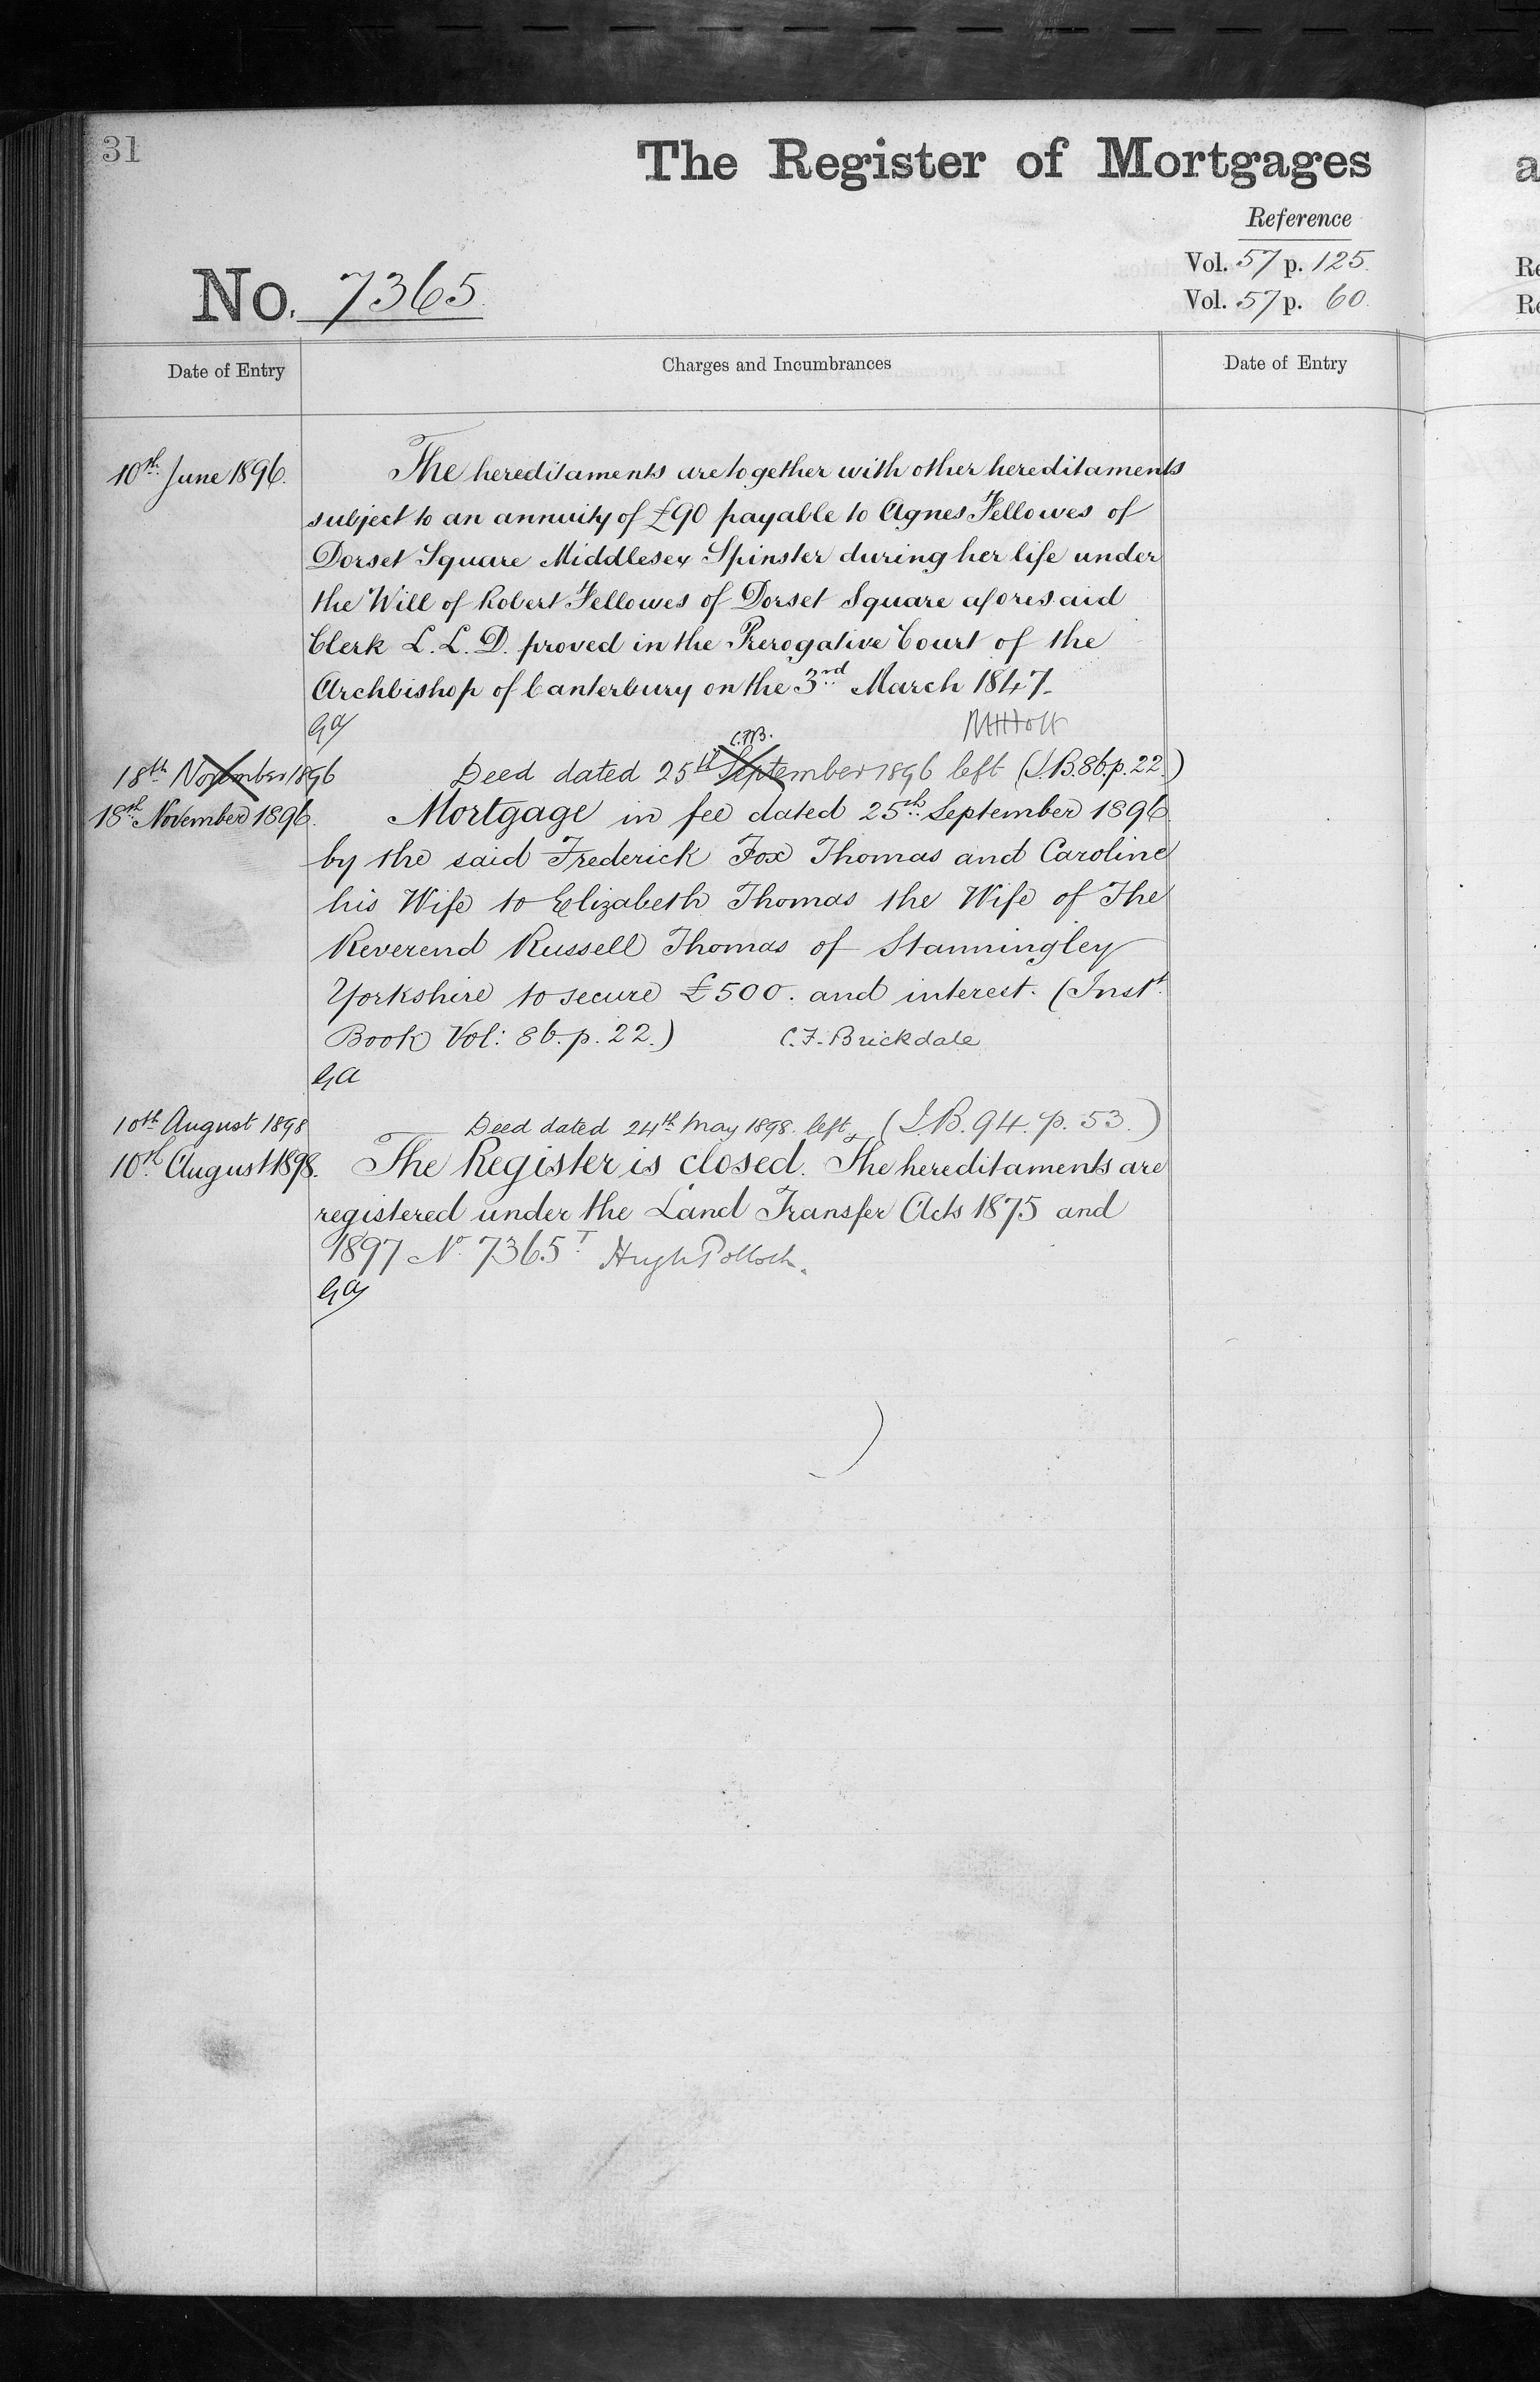 31
The Register of Mortgages
Reference
Vol. 57 p. 125.
Vol. 57 p. 60.
No. 7365.
Date of Entry
Charges and Incumbrances
Date of Entry
10th June 1896. The hereditaments are together with other hereditaments
subject to an annuity of £90 payable to Agnes Fellowes of
Dorset Square Middlesex Spinster during her life under
the Will of Robert Fellowes of Dorset Square aforesaid
Clerk L.L.D. proved in the Prerogative Court of the
Archbishop of Canterbury on the 3rd March 1847.
GA
C.F.B.
18th November 1896 Deed dated 25th September 1896 left (I.B. 86. p. 22.)
18th November 1896. Mortgage in fee dated 25th September 1896
by the said Frederick Fox Thomas and Caroline
his Wife to Elizabeth Thomas the Wife of The
Reverend Russell Thomas of Stanningley
Yorkshire to secure £500. and interest. (Inst.
Book Vol: 86. p. 22.) C.F. Brickdale
GA
10th August 1898 Deed dated 24th May 1898 left, (I.B. 94. p. 53.)
10th August 1898. The Register is closed. The hereditaments are
registered under the Land Transfer Acts 1875 and
1897 No. 7365T Hugh Pollock.
GA
a
Re
Re